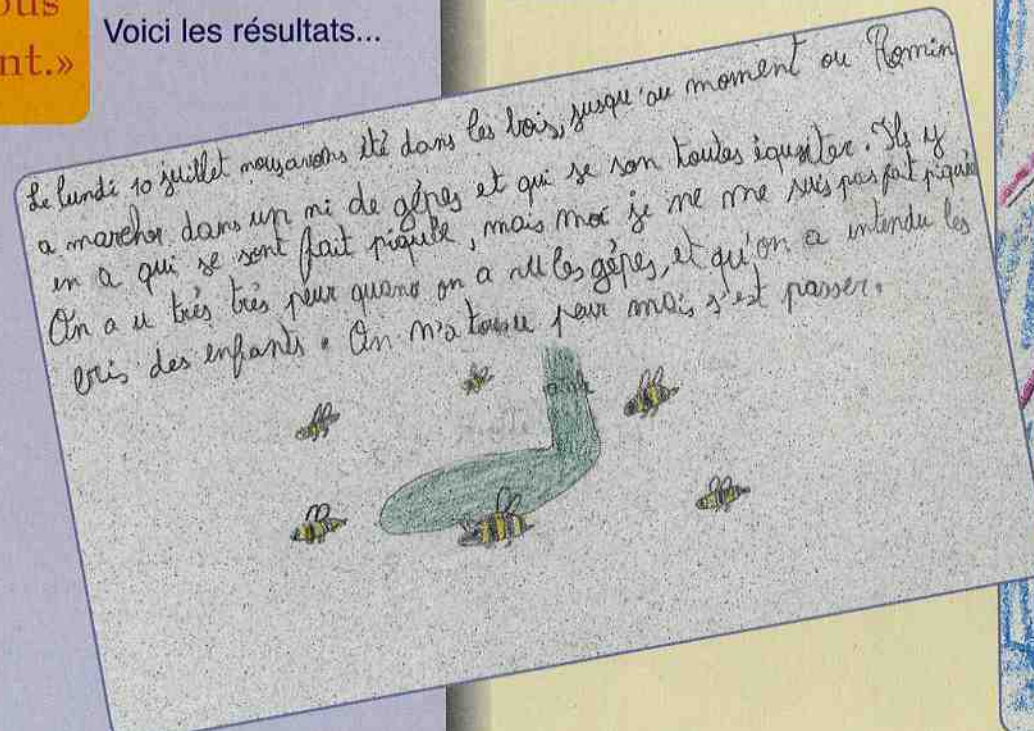 ous
nt.»
Voici les résultats...
Le lundi 10 juillet nous avons été dans les bois, jusqu'au moment ou Romin
a marcher dans un ni de gépes et qui se son toutes
in a qui se sont fait piquée, mais moi je ne me suis pas fait piquée
On a u très très peur quand on a les gépes, et qu'on a intendu les
cris des enfants. On peur mais s'est passer.